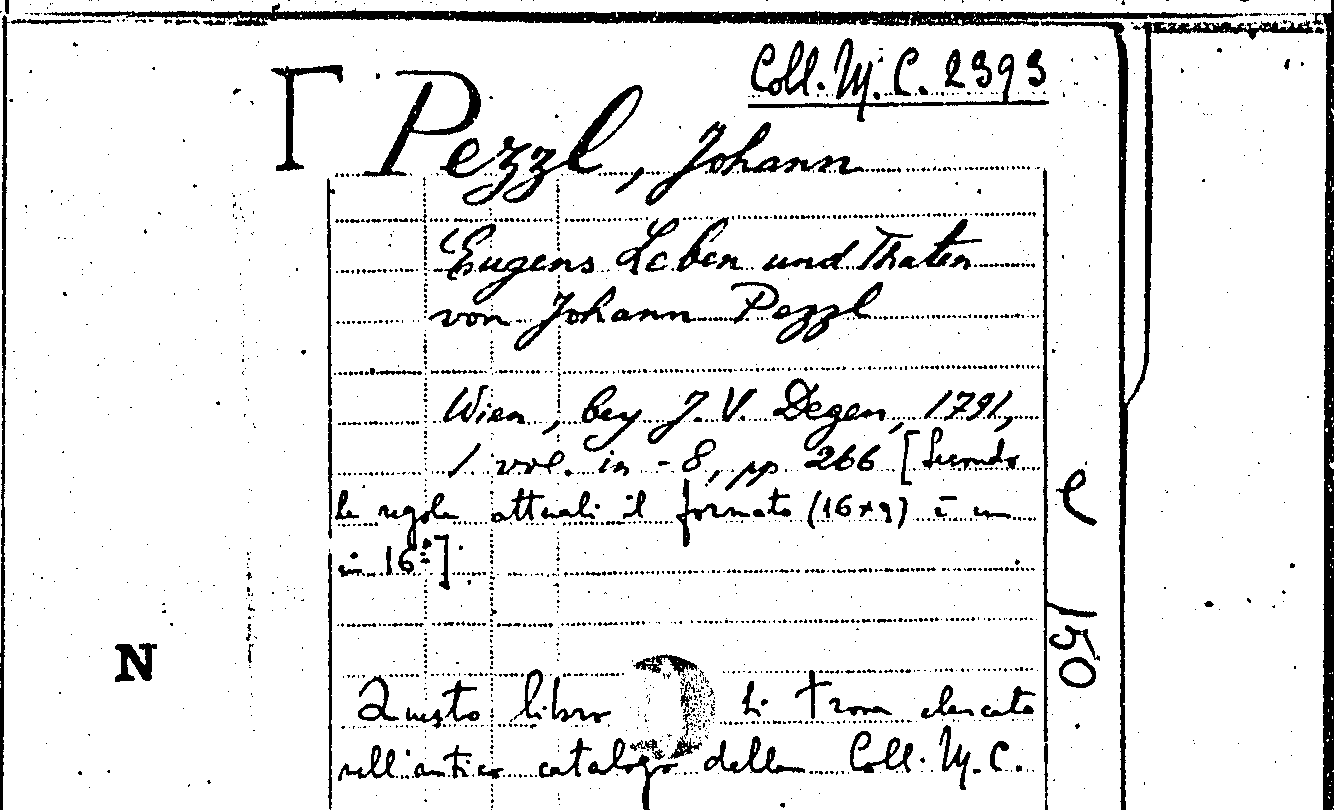 Coll. M. C. 2393
Pezzl, Johann
Eugens Leben und Thaten
von Johann Pezzl
Wien, bey J. V. Degen, 1791,
1 vol. in -8, pp 266 [Secondo
le regole attuali il formato (16x9) è un
in 16°].
e 150
N
Questo libro si trova elencato
nell'antico catalogo della Coll. M. C.